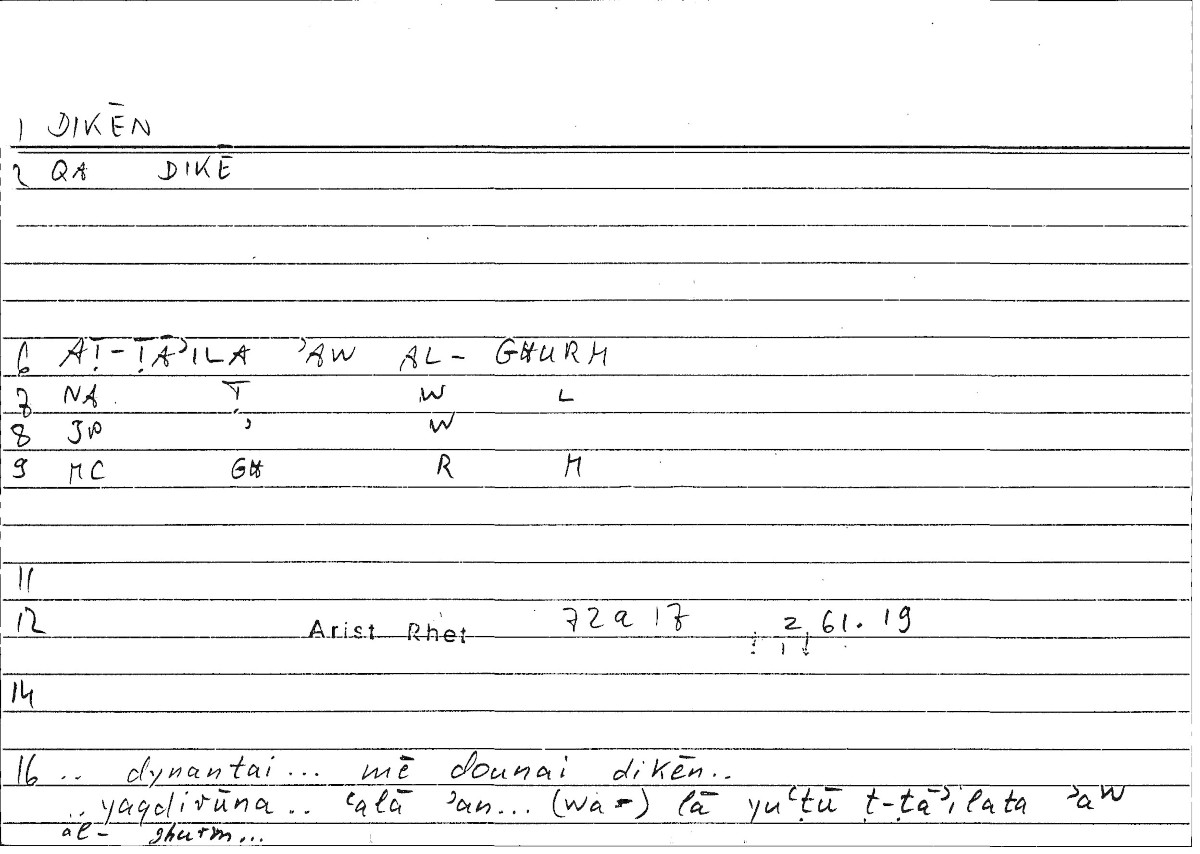 1 DIKĒN
2 QA DIKĒ
6 AṬ-ṬĀʾILA ʾAW AL-GHURM
7 NA Ṭ W L
8 JP ʾ W
9 MC GH R M
11
12 Arist Rhet 72a 17 2, 61. 19
14
16 .. dynantai ... mē dounai dikēn..
.. yaqdirūna .. ʿalā ʾan ... (wa-) lā yuʿṭū ṭ-ṭāʾilata ʾaw
al- ghurm...